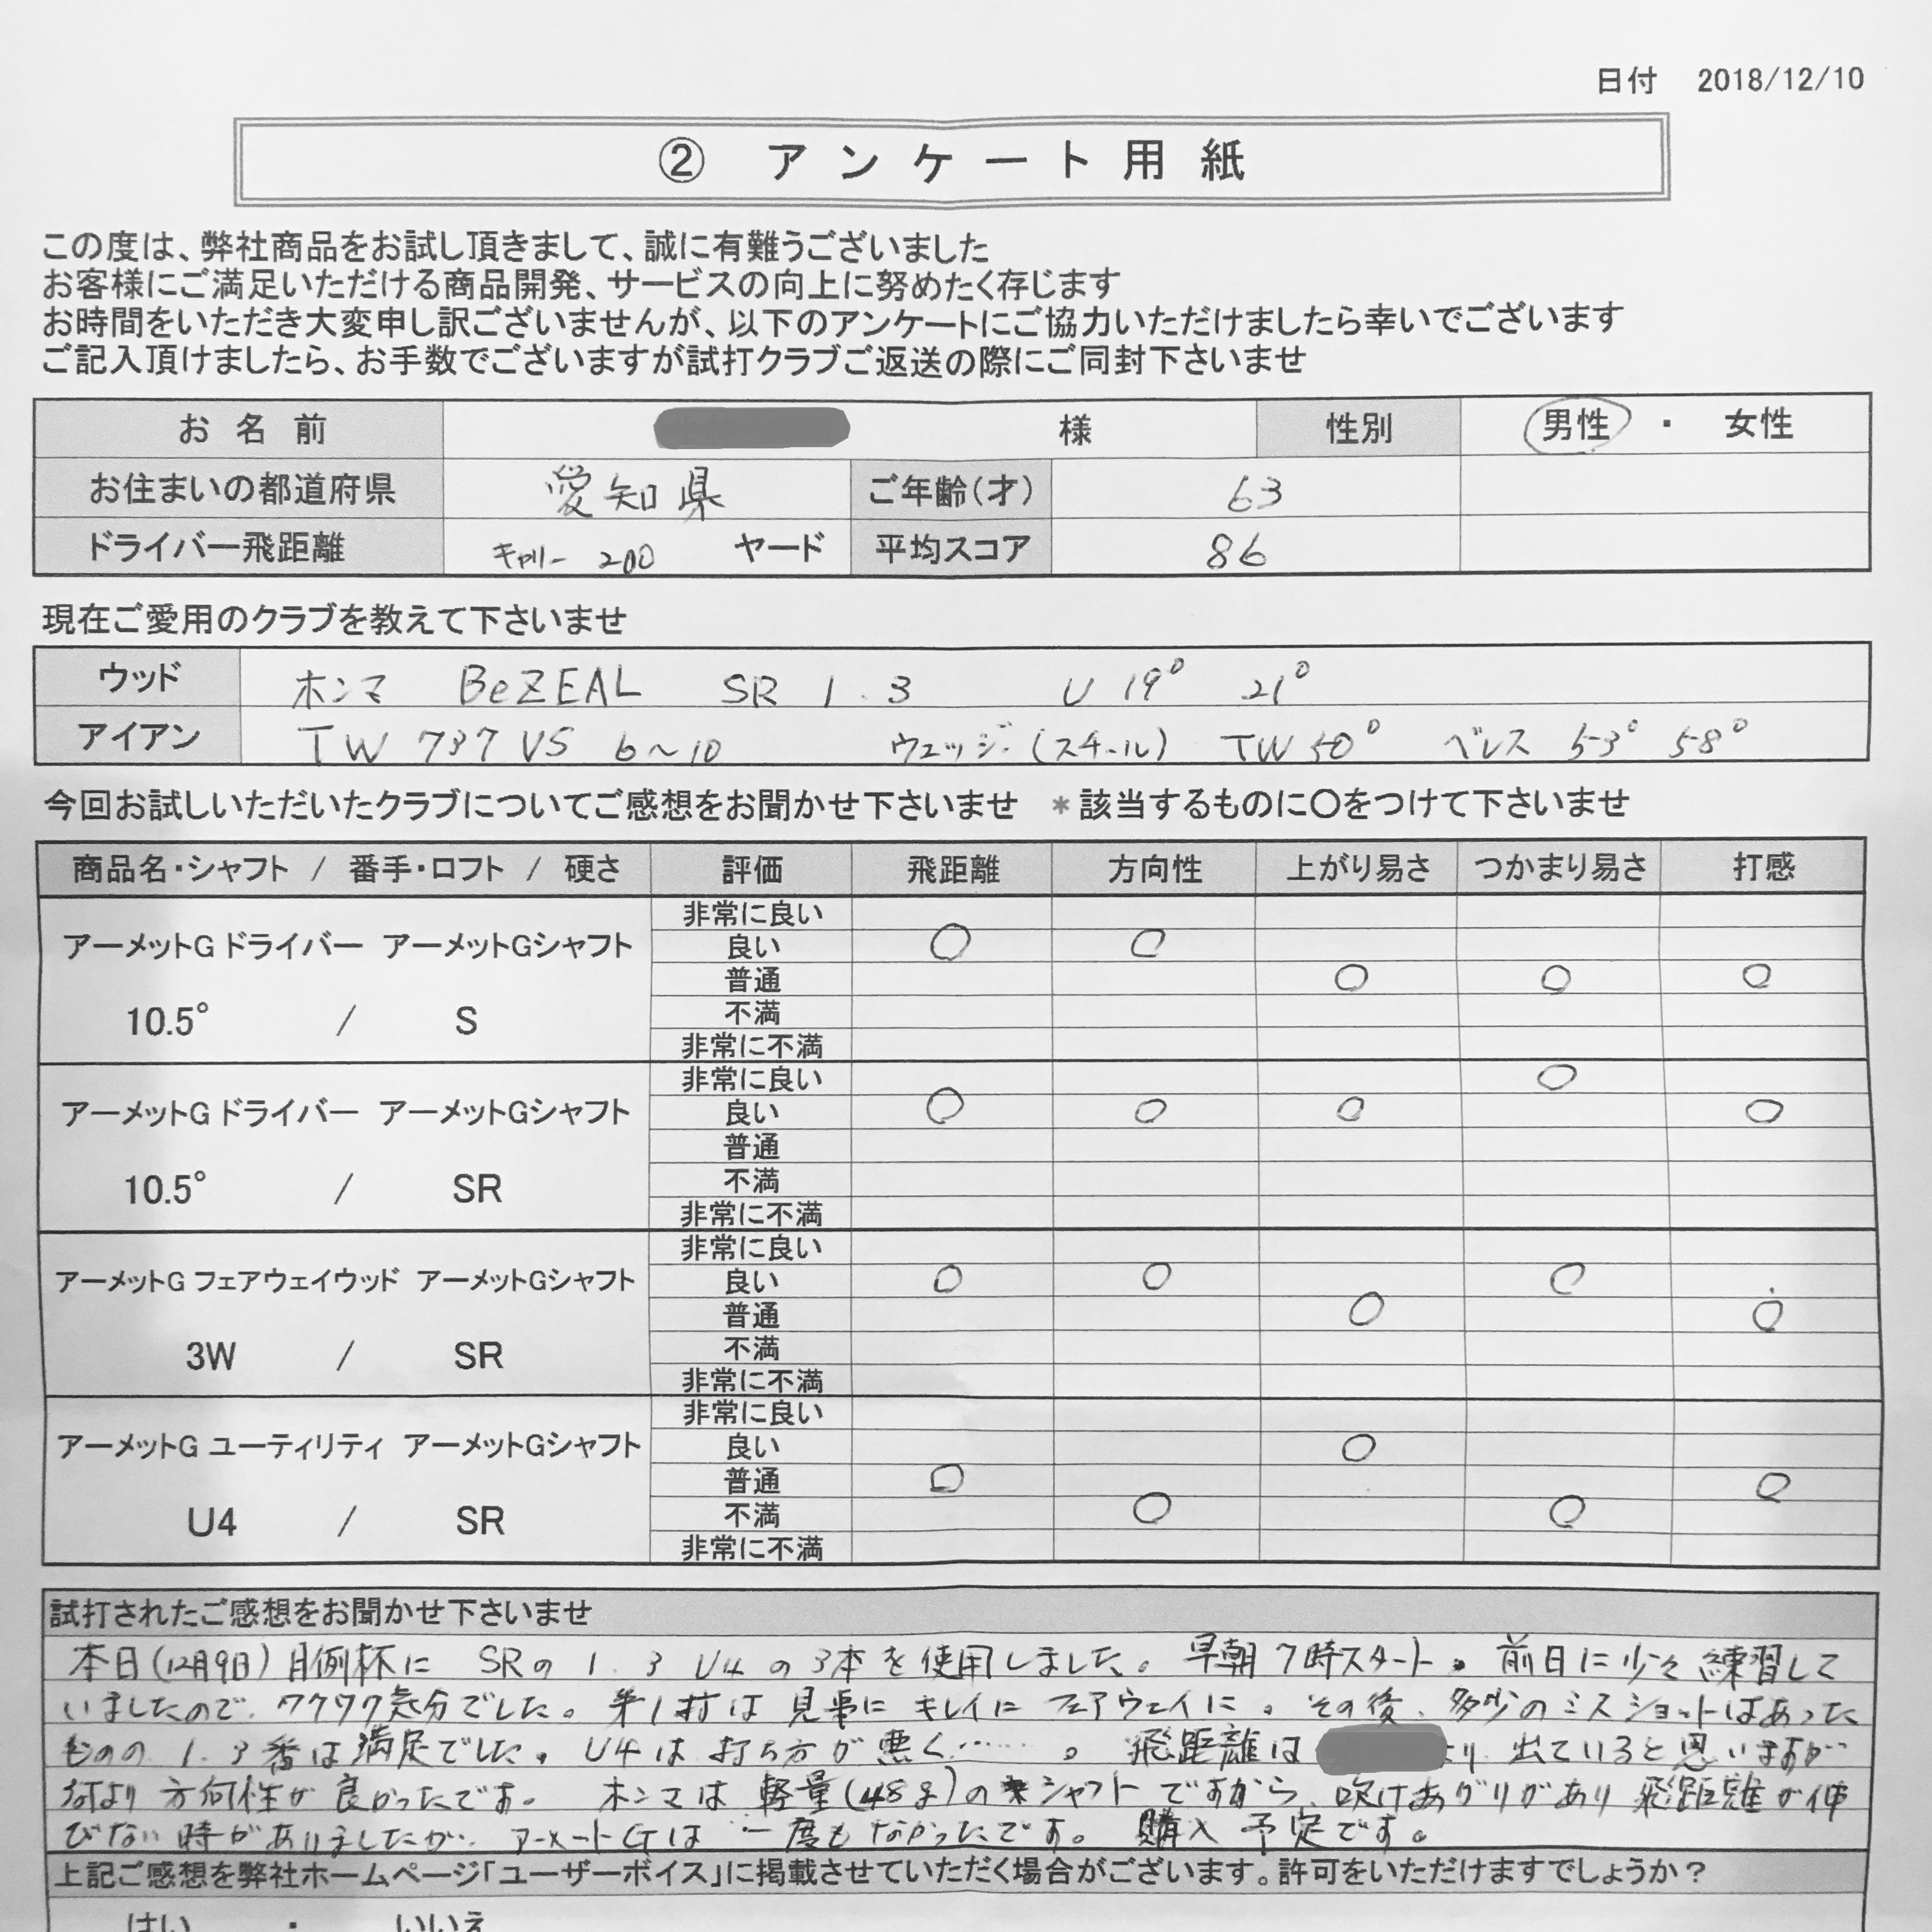 日付 2018/12/10
② アンケート用紙
この度は、弊社商品をお試し頂きまして、誠に有難うございました
お客様にご満足いただける商品開発、サービスの向上に努めたく存じます
お時間をいただき大変申し訳ございませんが、以下のアンケートにご協力いただけましたら幸いでございます
ご記入頂けましたら、お手数でございますが試打クラブご返送の際にご同封下さいませ
お名前 様 性別 男性 ・ 女性
お住まいの都道府県 愛知県 ご年齢(才) 63
ドライバー飛距離 キャリー 200 ヤード 平均スコア 86
現在ご愛用のクラブを教えて下さいませ
ウッド ホンマ BeZEAL SR 1.3 U 19° 21°
アイアン TW 737 VS 6〜10 ウェッジ(スチール) TW 50° ベレス 53° 58°
今回お試しいただいたクラブについてご感想をお聞かせ下さいませ *該当するものに〇をつけて下さいませ
商品名・シャフト / 番手・ロフト / 硬さ 評価 飛距離 方向性 上がり易さ つかまり易さ 打感
非常に良い
アーメットG ドライバー アーメットGシャフト 良い 〇 〇
普通 〇 〇 〇
10.5° / S 不満
非常に不満
非常に良い 〇
アーメットG ドライバー アーメットGシャフト 良い 〇 〇 〇 〇
普通
10.5° / SR 不満
非常に不満
非常に良い
アーメットG フェアウェイウッド アーメットGシャフト 良い 〇 〇 〇
普通 〇 〇
3W / SR 不満
非常に不満
非常に良い
アーメットG ユーティリティ アーメットGシャフト 良い 〇
普通 〇 〇
U4 / SR 不満 〇 〇
非常に不満
試打されたご感想をお聞かせ下さいませ
本日(12月9日)月例杯に SRの 1.3 U4の3本を使用しました。早朝7時スタート。前日に少々練習して
いましたので、ワクワク気分でした。第1打は見事にキレイにフェアウェイに。その後、多少のミスショットはあった
ものの 1.3番は満足でした。U4は打ち方が悪く……。飛距離は より出ていると思いますが
何より方向性が良かったです。ホンマは軽量(48g)のシャフトですから、吹けあがりがあり飛距離が伸
びない時がありましたが、アーメットGは一度もなかったです。購入予定です。
上記ご感想を弊社ホームページ「ユーザーボイス」に掲載させていただく場合がございます。許可をいただけますでしょうか？
はい ・ いいえ